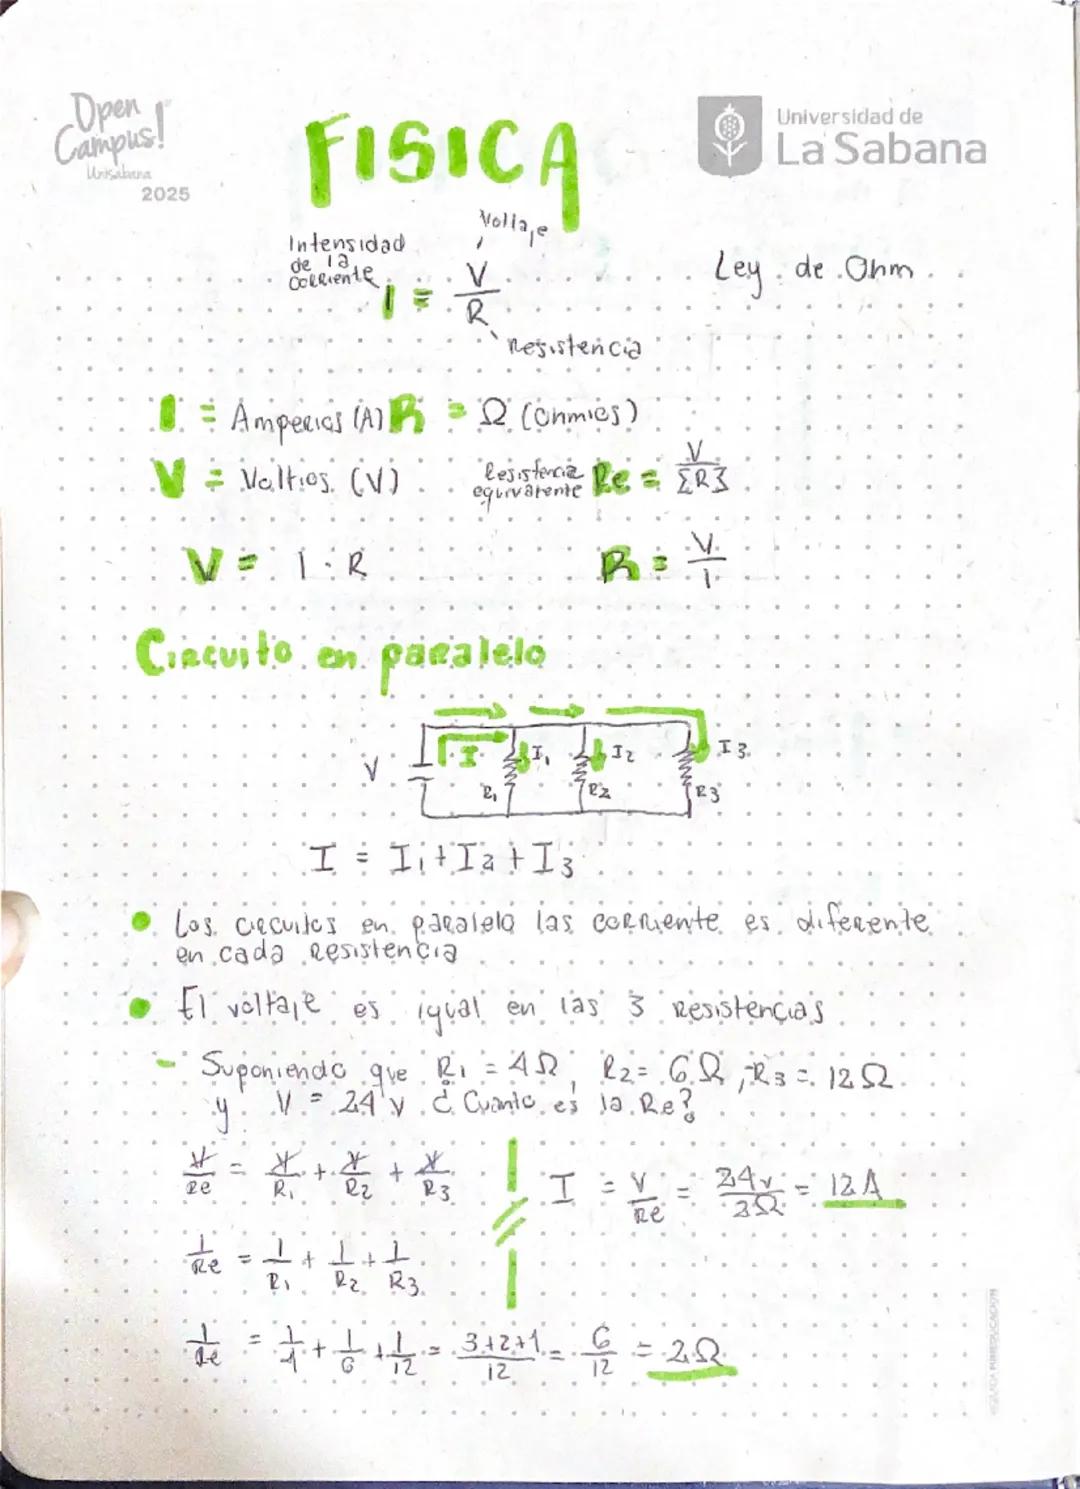 Open
Campus!
Unisabana
2025
FISICA
Universidad de
La Sabana
Voltaje
Intensidad
de la
corriente
I = V/R
Resistencia
Ley de Ohm
I = Amperios (A) R = Ω (Ohmios)
V = Voltios (V)
Resistencia
equivalente Re = V/ΣR3
V = I · R
R = V/I
Circuito en paralelo
V I I1 I2 I3
R1 R2 R3
I = I1 + I2 + I3
Los circuitos en paralelo las corriente es diferente
en cada resistencia
El voltaje es igual en las 3 resistencias
- Suponiendo que R1 = 4Ω, R2 = 6Ω, R3 = 12Ω
y V = 24v ¿Cuanto es la Re?
V/Re = V/R1 + V/R2 + V/R3
I = V/Re = 24v/2Ω = 12A
1/Re = 1/R1 + 1/R2 + 1/R3
1/Re = 1/4 + 1/6 + 1/12 = 3+2+1/12 = 6/12 = 2Ω